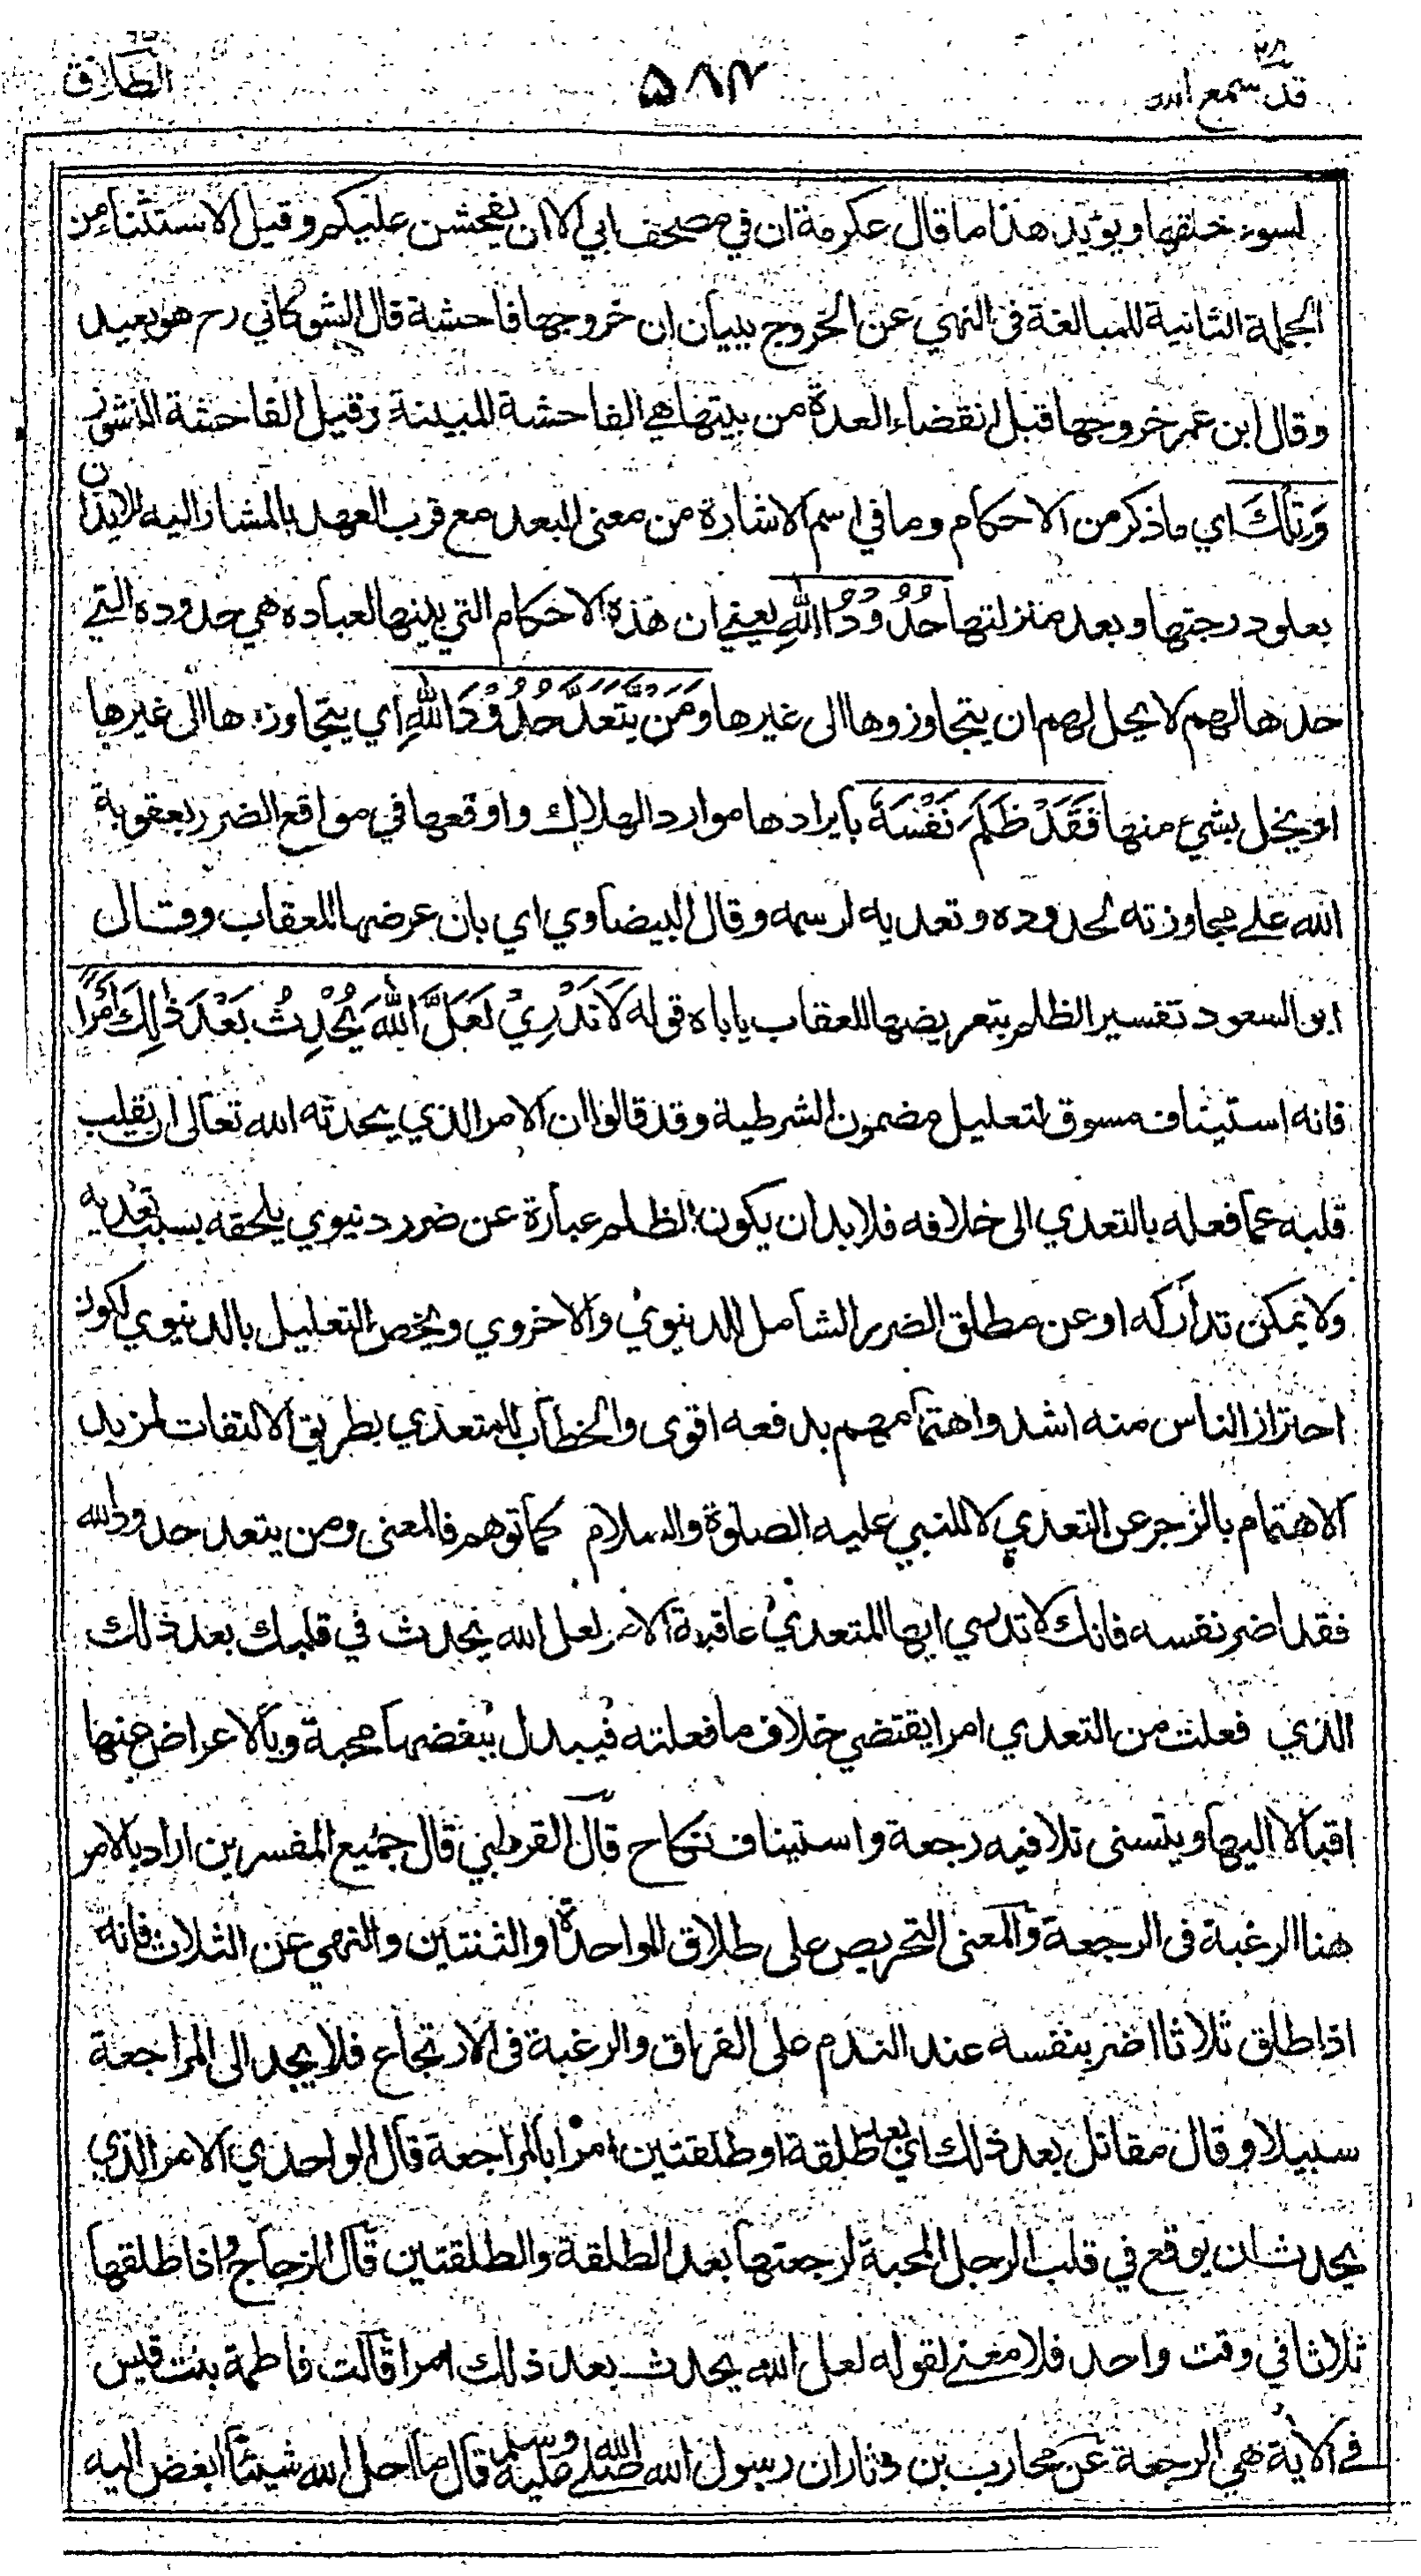 قد سمع الله ٢٨
٥٨٢
الطلاق
لسوء خلقها ويؤيد هذا ما قال عكرمة ان في مصحف ابي الا ان يفحشن عليكم وقيل الاستثناء من
الجملة الثانية للمبالغة فى النهي عن الخروج ببيان ان خروجها فاحشة قال الشوكاني رح هو بعيد
وقال ابن عمر خروجها قبل انقضاء العدة من بيتها هي الفاحشة المبينة وقيل الفاحشة النشوز
وَتِلْكَ اي ما ذكر من الاحكام وما في اسم الاشارة من معنى البعد مع قرب العهد بالمشار اليه للايذان
بعلو درجتها وبعد منزلتها حُدُوْدُ اللّٰهِ يعني ان هذة الاحكام التي بينها لعباده هي حدوده التي
حدها لهم لا يحل لهم ان يتجاوزوها الى غيرها وَمَنْ يَّتَعَدَّ حُدُوْدَ اللّٰهِ اي يتجاوزها الى غيرها
او يخل بشيء منها فَقَدْ ظَلَمَ نَفْسَهٗ بايرادها موارد الهلاك واوقعها في مواقع الضرر بعقوبة
الله على مجاوزته لحدوده وتعديه لرسمه وقال البيضاوي اي بان عرضها للعقاب وقال
ابو السعود تفسير الظلم بتعريضها للعقاب ياباه قوله لَا تَدْرِيْ لَعَلَّ اللّٰهَ يُحْدِثُ بَعْدَ ذٰلِكَ اَمْرًا
فانه استيناف مسوق لتعليل مضمون الشرطية وقد قالوا ان الامر الذي يحدثه الله تعالى ان يقلب
قلبه عما فعله بالتعدي الى خلافه فلا بد ان يكون الظلم عبارة عن ضرر دنيوي يلحقه بسبب تعديه
ولا يمكن تداركه او عن مطلق الضرر الشامل للدنيوي والاخروي ويخص التعليل بالدنيوي لكون
احتراز الناس منه اشد واهتمامهم بدفعه اقوى والخطاب للمتعدي بطريق الالتفات لمزيد
الاهتمام بالزجر عن التعدي لا للنبي عليه الصلوة والسلام كما توهم فالمعنى ومن يتعد حدود الله
فقد اضر نفسه فانك لا تدري ايها المتعدي عاقبة الامر لعل الله يحدث في قلبك بعد ذلك
الذي فعلت من التعدي امرا يقتضي خلاف ما فعلته فيبدل ببغضها محبة وبالاعراض عنها
اقبالا اليها ويتسنى تلافيه رجعة واستيناف نكاح قال القرطبي قال جميع المفسرين اراد بالامر
هنا الرغبة فى الرجعة والمعنى التحريص على طلاق الواحدة او الثنتين والنهي عن الثلاث فانه
اذا طلق ثلاثا اضر بنفسه عند الندم على الفراق والرغبة فى الارتجاع فلا يجد الى المراجعة
سبيلا وقال مقاتل بعد ذلك اي بعد طلقة او طلقتين امرا بالمراجعة قال الواحدي الامر الذي
يحدث ان يوقع في قلب الرجل المحبة لرجعتها بعد الطلقة والطلقتين قال الزجاج واذا طلقها
ثلاثا في وقت واحد فلا معنى لقوله لعل الله يحدث بعد ذلك امرا قالت فاطمة بنت قيس
في الاية هي الرجعة عن محارب بن دثار ان رسول الله صلى الله عليه وسلم قال ما احل الله شيئا ابغض اليه